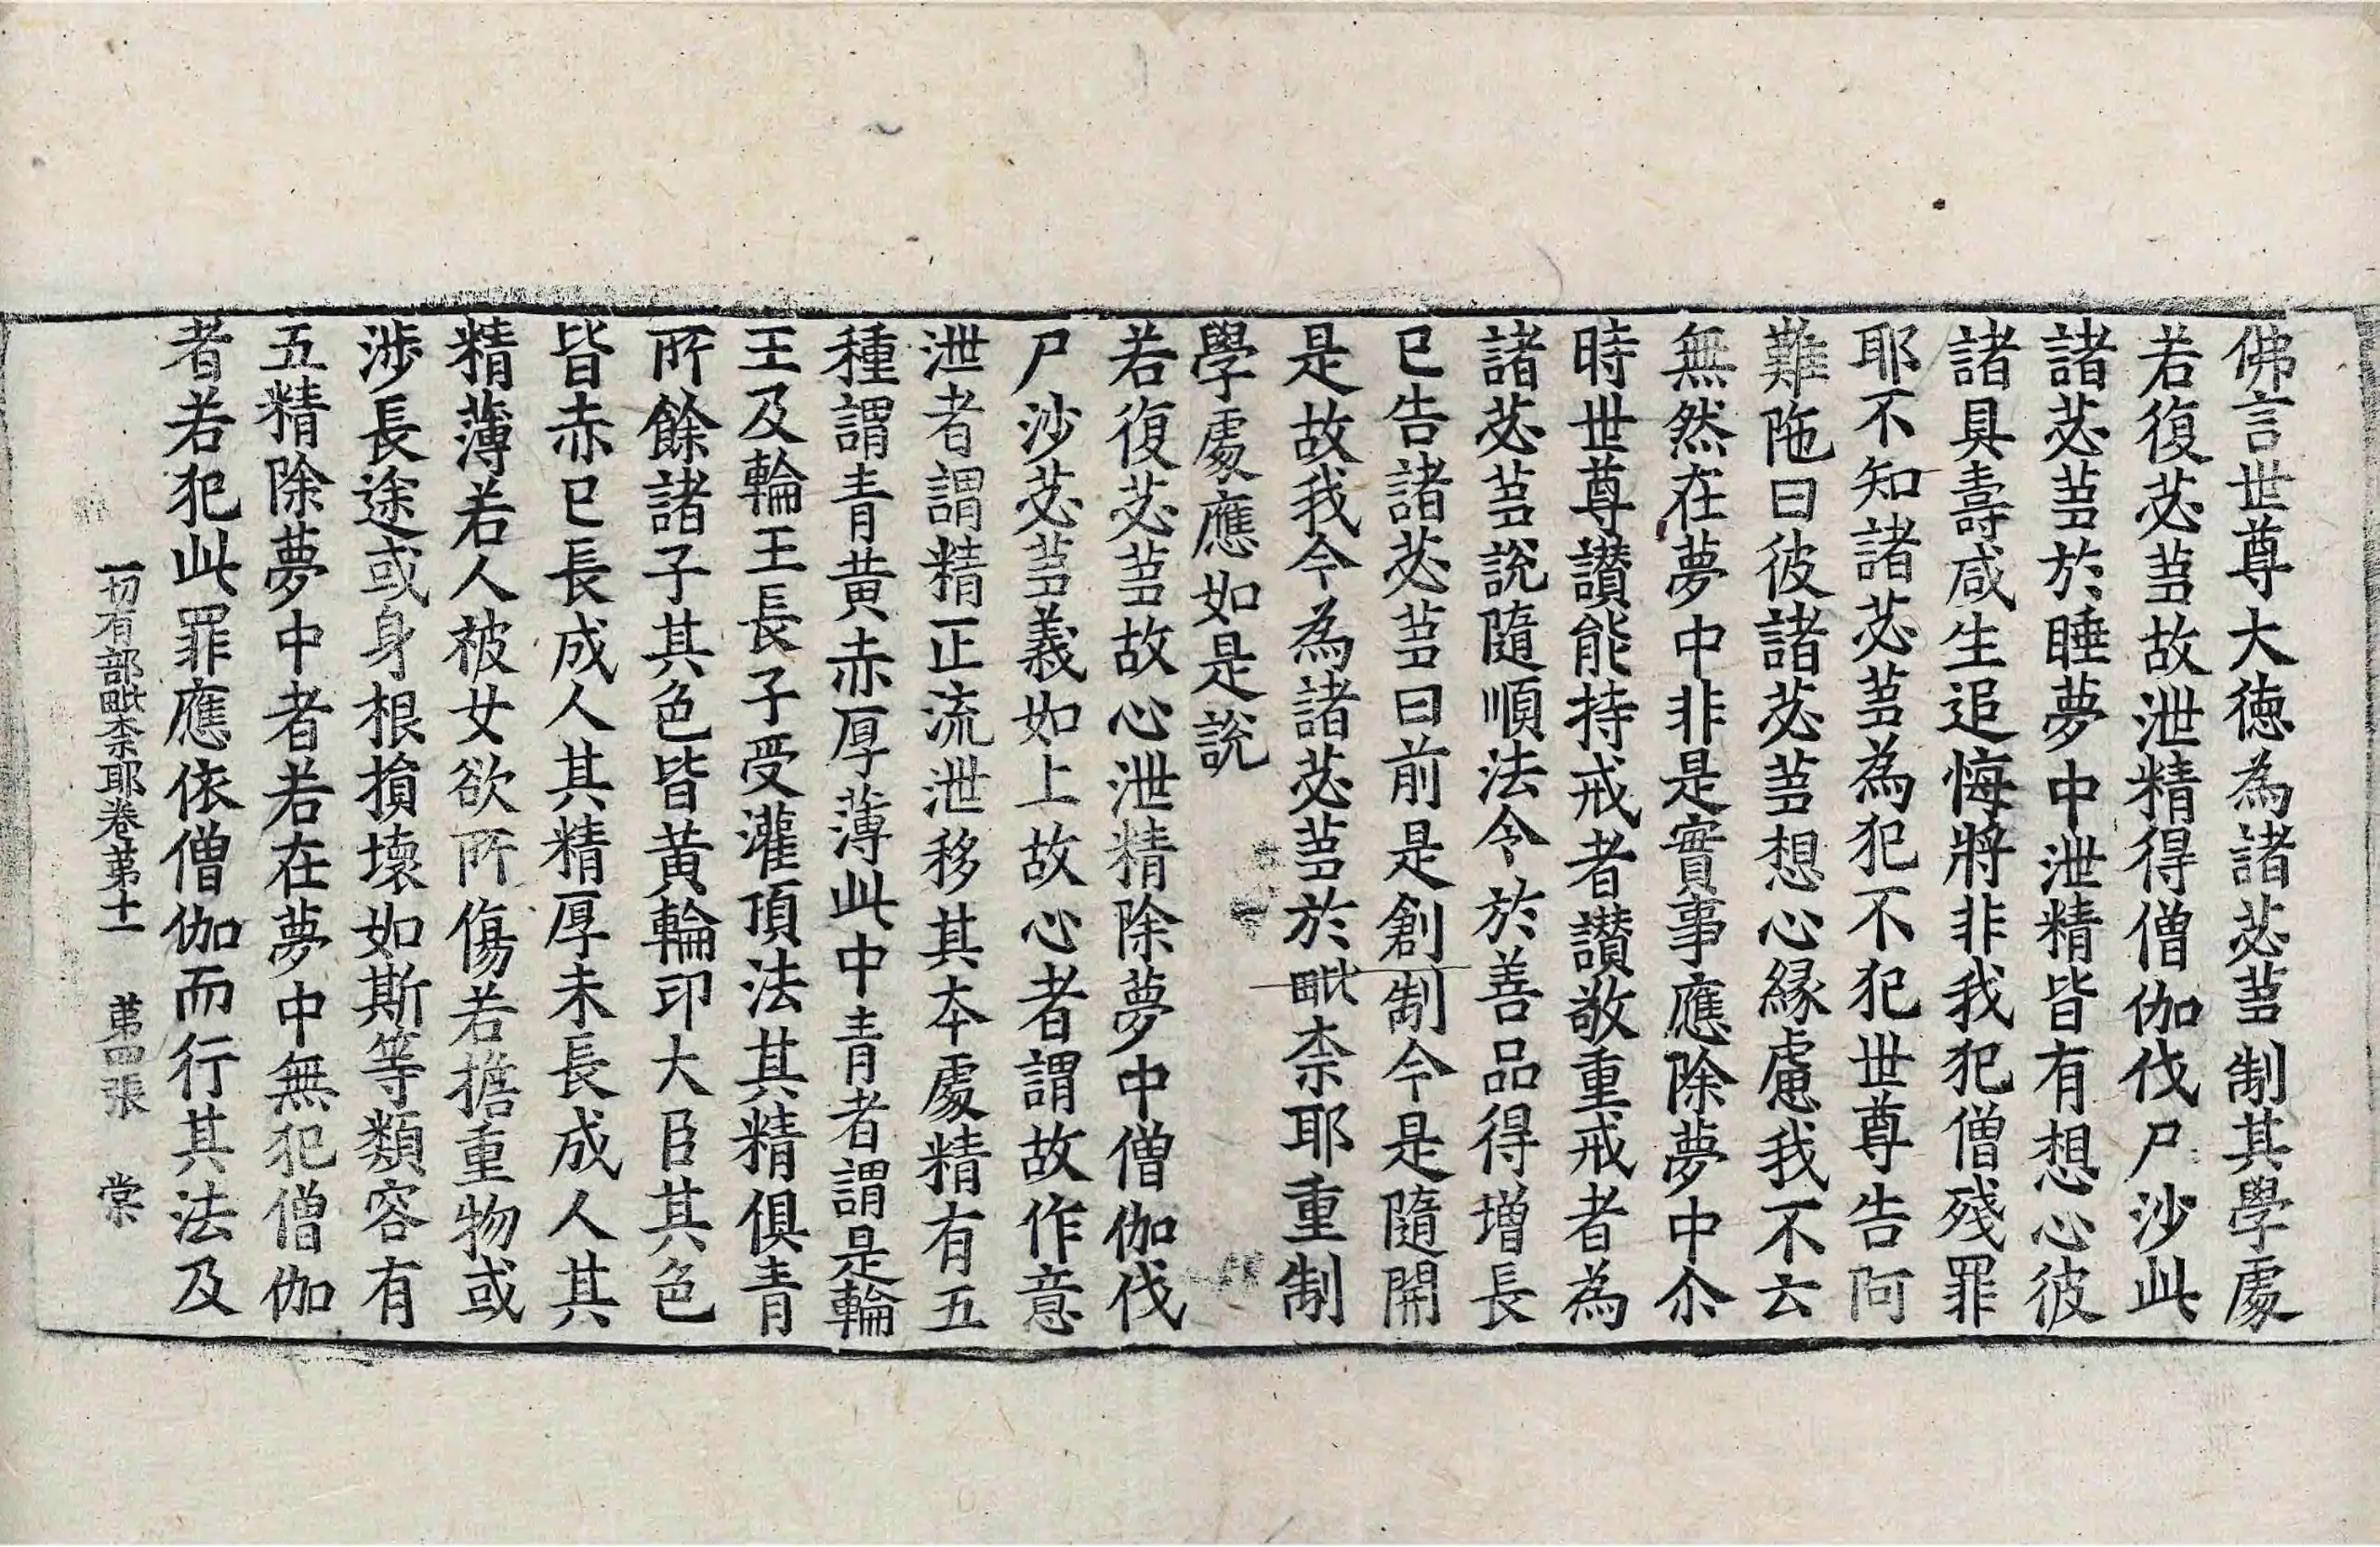 佛言世尊大德為諸苾蒭制其學處
若復苾蒭故泄精得僧伽伐尸沙此
諸苾蒭於睡夢中泄精皆有想心彼
諸具壽咸生追悔將非我犯僧殘罪
耶不知諸苾蒭為犯不犯世尊告阿
難陁曰彼諸苾蒭想心緣慮我不云
無然在夢中非是實事應除夢中尒
時世尊讃能持戒者讃敬重戒者為
諸苾蒭說隨順法令於善品得增長
已告諸苾蒭曰前是創制今是隨開
是故我今為諸苾蒭於毗柰耶重制
學處應如是說
若復苾蒭故心泄精除夢中僧伽伐
尸沙苾蒭義如上故心者謂故作意
泄者謂精正流泄移其本處精有五
種謂青黃赤厚薄此中青者謂是輪
王及輪王長子受灌頂法其精俱青
所餘諸子其色皆黃輪印大臣其色
皆赤已長成人其精厚未長成人其
精薄若人被女欲所傷若擔重物或
涉長途或身根損壞如斯等類容有
五精除夢中者若在夢中無犯僧伽
者若犯此罪應依僧伽而行其法及
一切有部毗柰耶卷第十一 第四張 棠